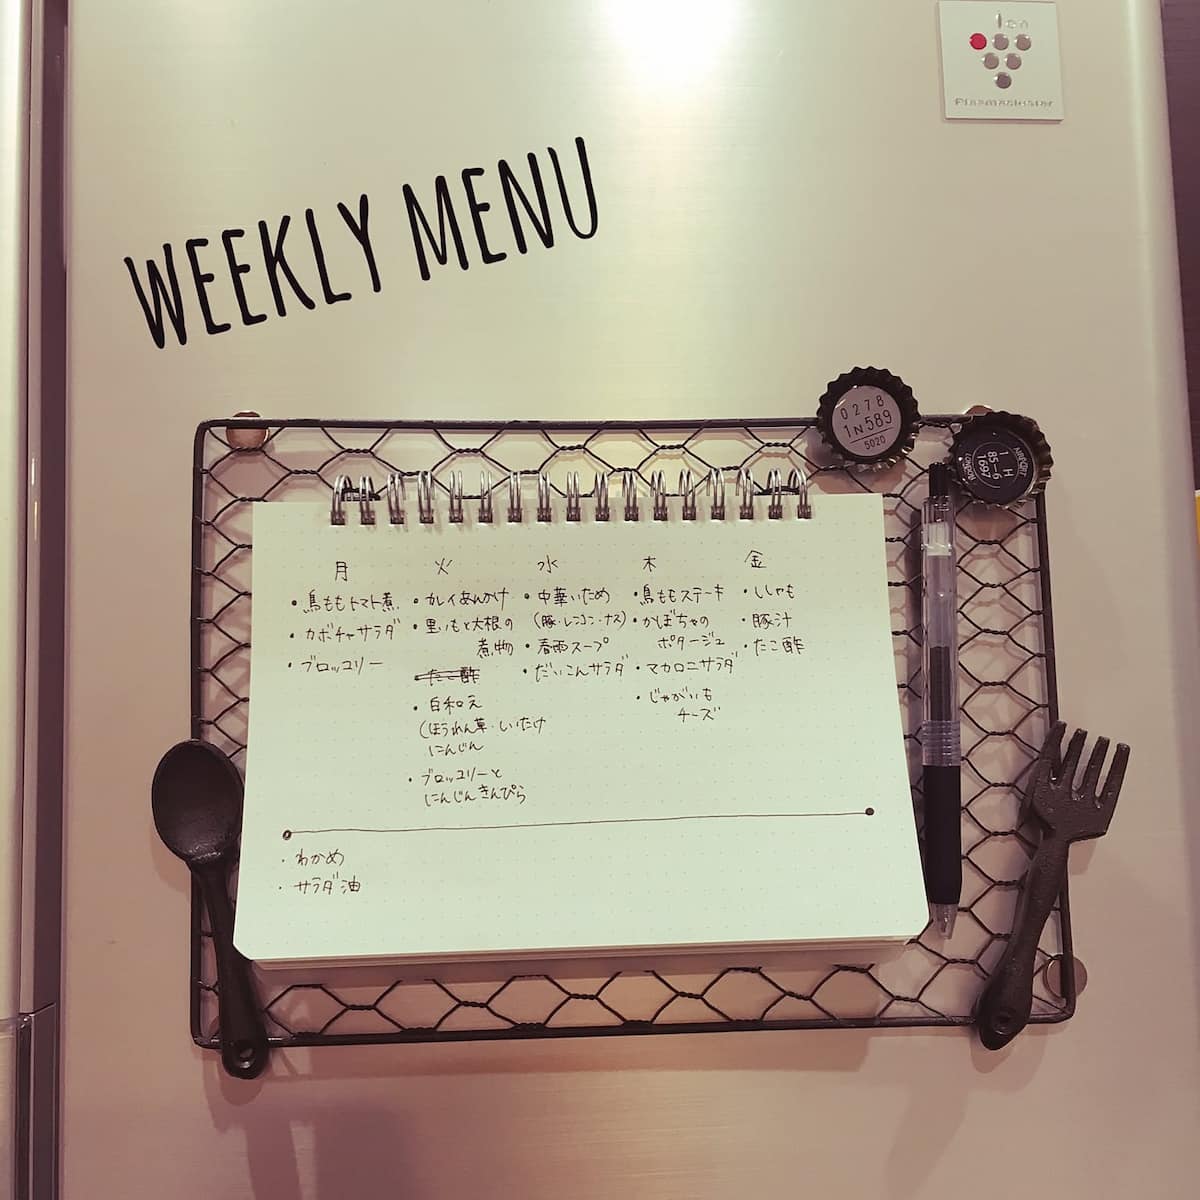 Ion
Plasmacluster
WEEKLY MENU
0278
1N589
5020
1 H
85-6
1697
LONDON
月
・鳥ももトマト煮
・カボチャサラダ
・ブロッコリー
火
・カレイあんかけ
・里いもと大根の
煮物
たこ酢
・白和え
(ほうれん草・しいたけ
にんじん
・ブロッコリーと
にんじんきんぴら
水
・中華いため
(豚・レンコン・ナス)
・春雨スープ
・だいこんサラダ
木
・鳥ももステーキ
・かぼちゃの
ポタージュ
・マカロニサラダ
・じゃがいも
チーズ
金
・ししゃも
・豚汁
・たこ酢
・わかめ
・サラダ油